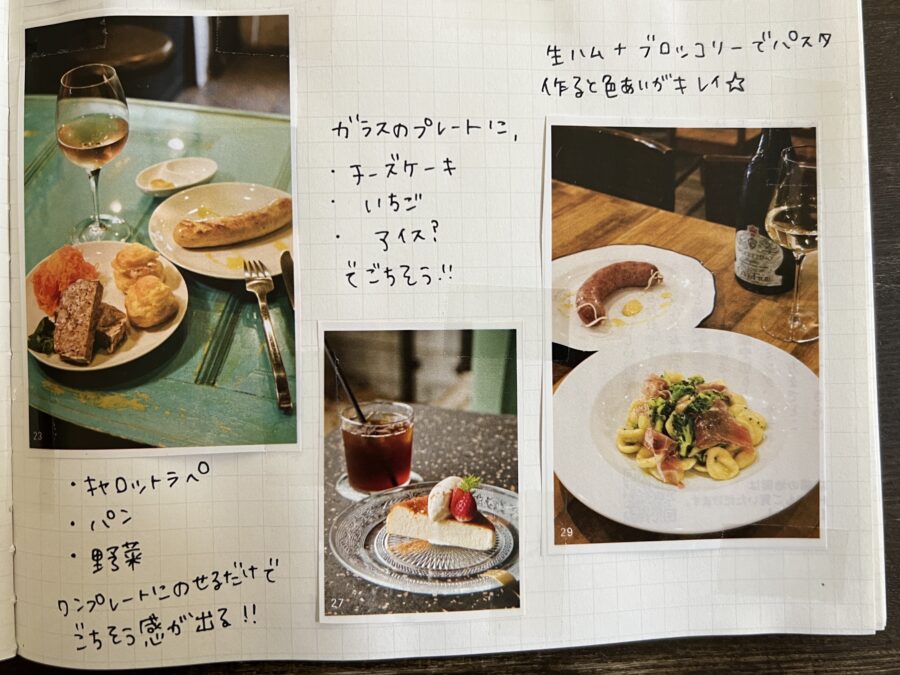 生ハム+ブロッコリーでパスタ
作ると色あいがキレイ☆
ガラスのプレートに,
・チーズケーキ
・いちご
・アイス?
でごちそう!!
23
・キャロットラペ
・パン
・野菜
ワンプレートにのせるだけで
ごちそう感が出る!!
27
29